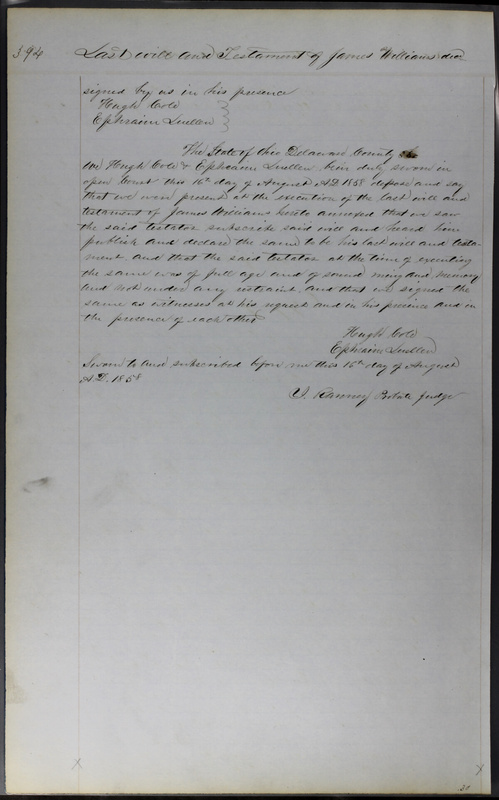 394 Last will and Testament of James Williams decd
signed by us in his presence
Hugh Cole
Ephraim Luellen
The State of Ohio Delaware County ss
We Hugh Cole & Ephraim Luellen being duly sworn in
open Court this 16th day of August A.D. 1858 depose and say
that we were present at the execution of the last will and
testament of James Williams hereto annexed that we saw
the said testator subscribe said will and heard him
publish and declare the same to be his last will and testa-
ment and that the said testator at the time of executing
the same was of full age and of sound mind and memory
and not under any restraint, and that we signed the
same as witnesses at his request and in his presence and in
the presence of each other
Hugh Cole
Ephraim Luellen
Sworn to and subscribed before me this 16th day of August
A.D. 1858
Ranney Probate Judge